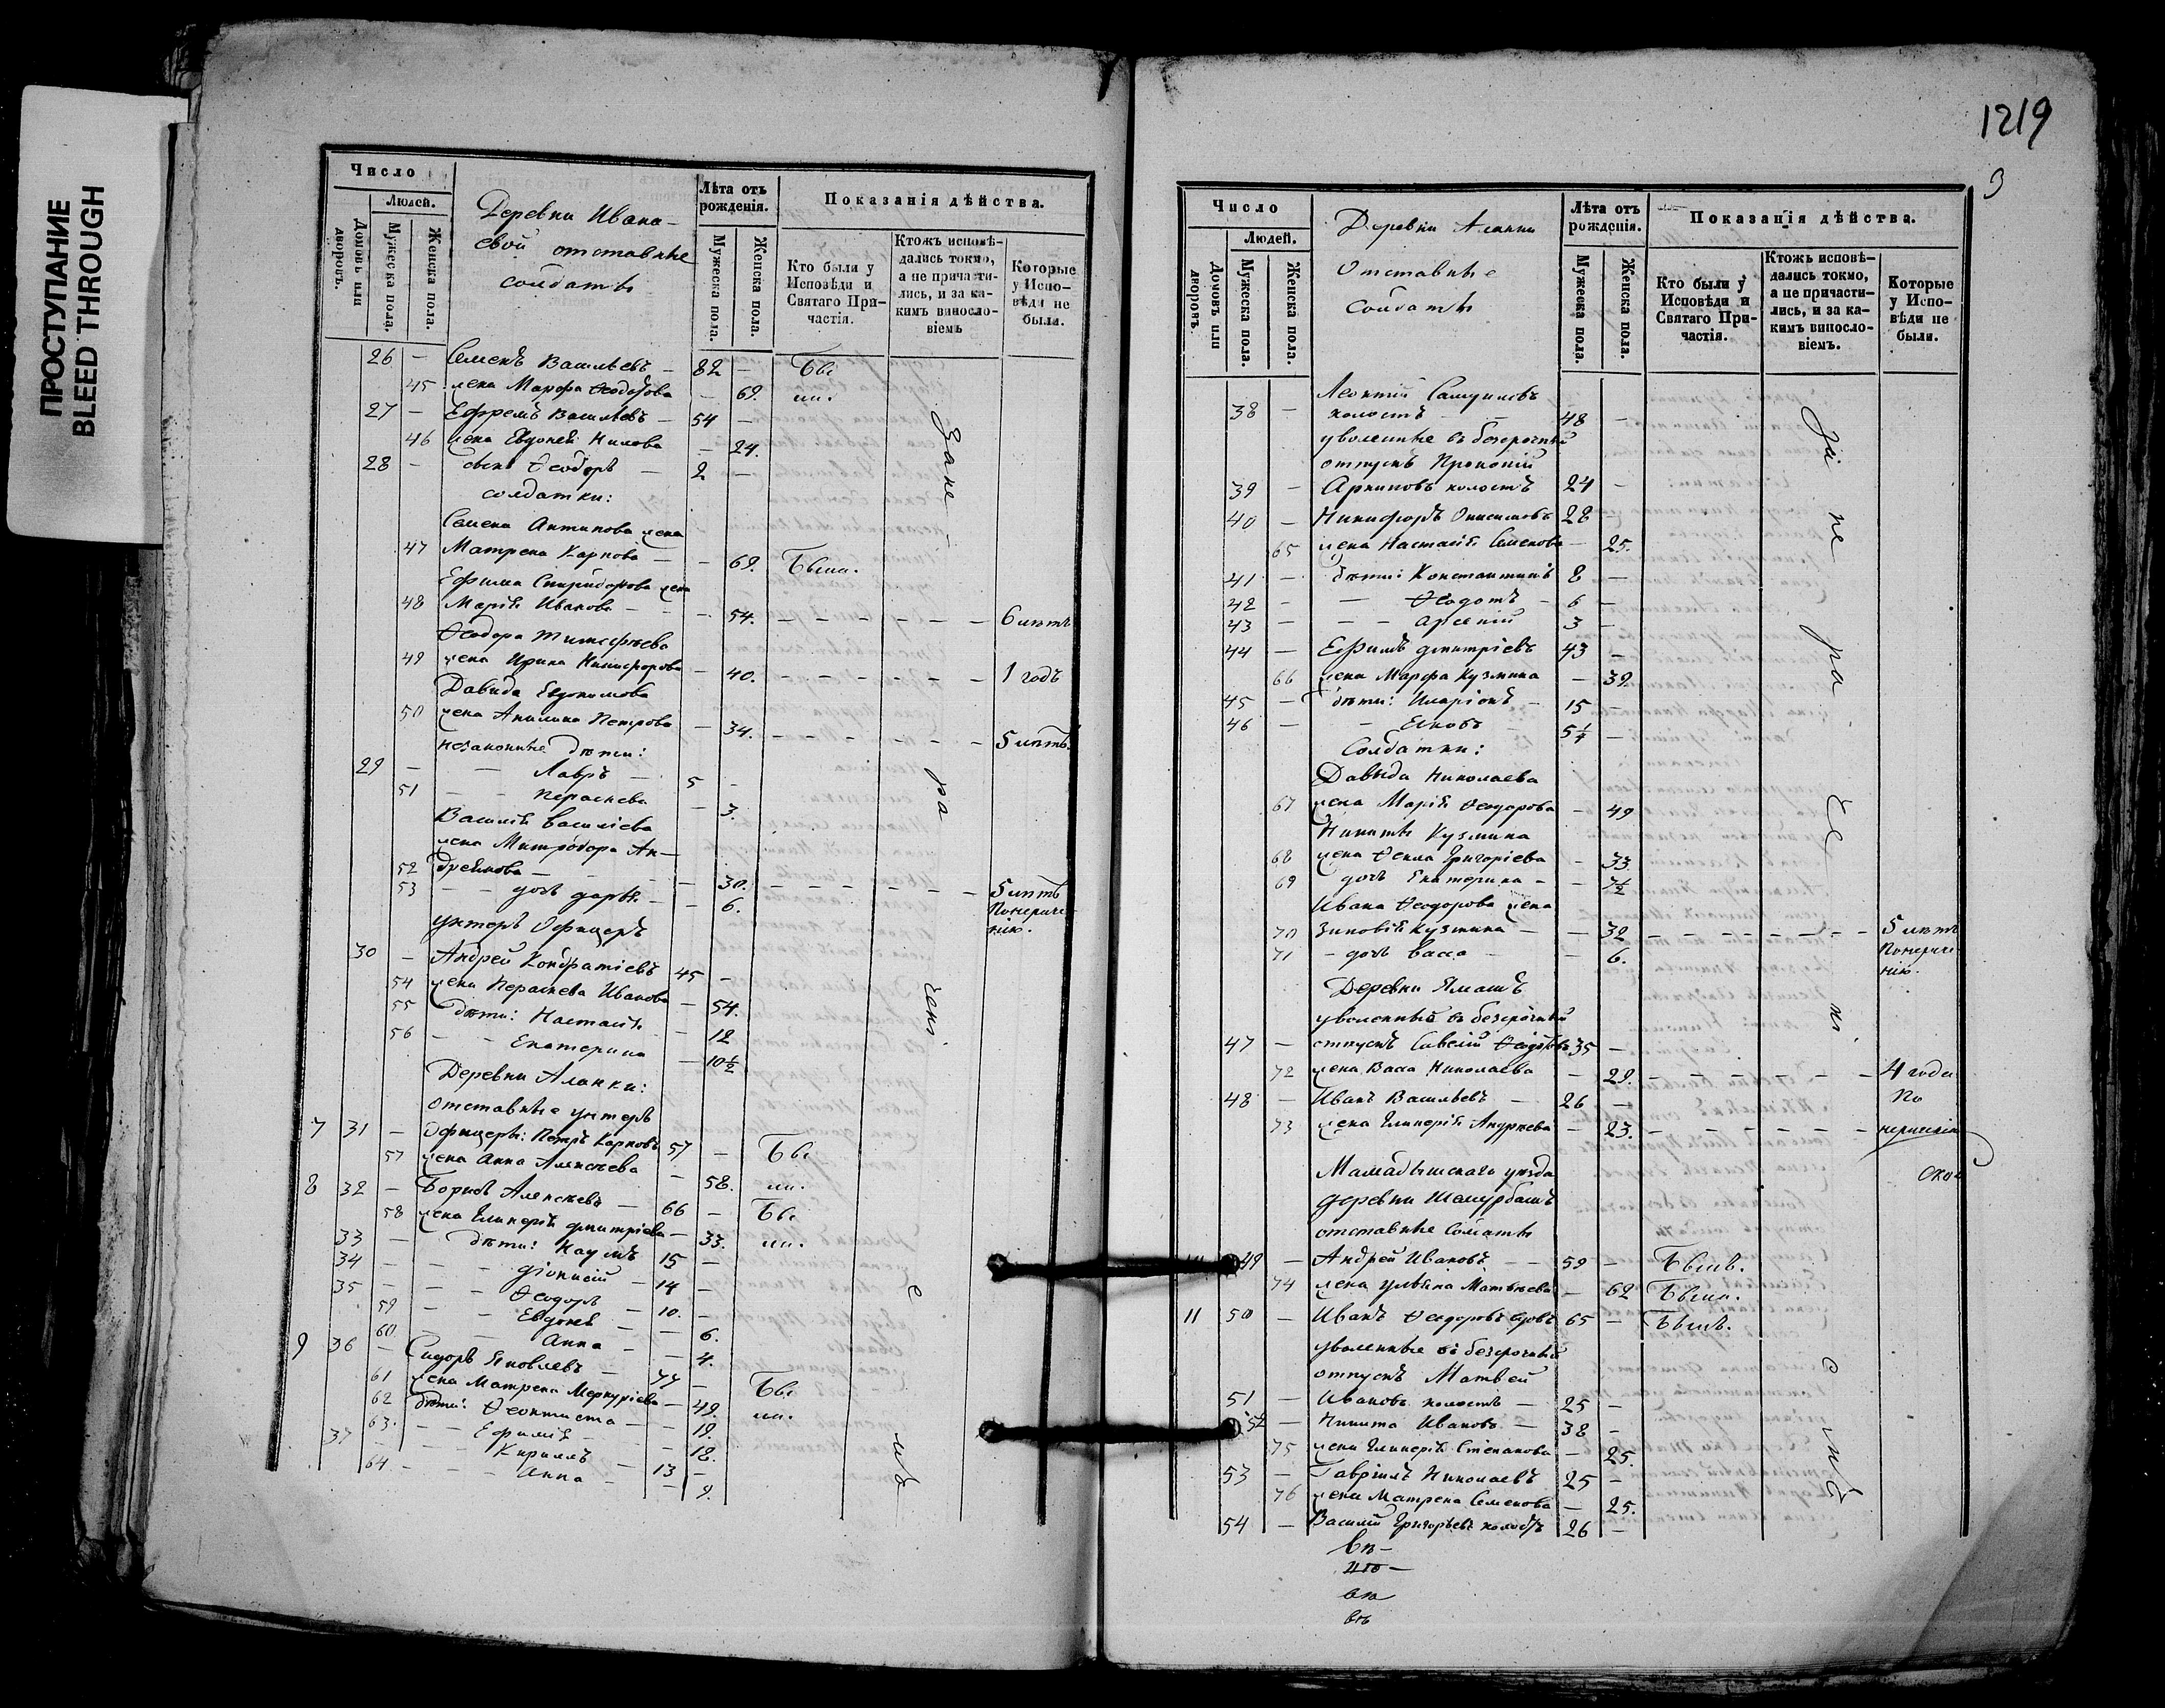 ПРОСТУПАНИЕ
BLEED THROUGH
Число
Людей.
Домовъ или дворовъ.
Мужеска пола.
Женска пола.
Деревни Ивана-
евой отставные
солдаты
Лѣта отъ рожденія.
Мужеска пола.
Женска пола.
Показанія дѣйства.
Кто были у Исповѣди и Святаго Причастія.
Ктожъ исповѣ-
дались токмо,
а не причасти-
лись, и за ка-
кимъ винсло-
віемъ
Которые
у Испо-
вѣди не
были.
26 – Семенъ Васильевъ – 82 – Бы
45 жена Марфа Ѳеодорова – 69. ли.
27 – Ефремъ Васильевъ – 54 –
46 жена Евдокея Нилова – 24.
28 – сынъ Ѳеодоръ – 2 –
солдатки:
Семена Антипова жена
47 Матрена Карпова – – 69. Была.
Ефима Спиридонова жена
48 Марія Иванова – – 54. – – – – – – 6 лѣтъ
Ѳеодора Тимофеева
49 жена Ирина Никифорова – 40. – – – – – – 1 годъ
Давида Евдокимова
50 жена Акилина Петрова – 34. – – – – – – 5 лѣтъ.
незаконные дѣти:
29 – – Лавръ – 5 –
51 – – Пераскева – 3.
Василія Васильева
жена Митродора Ан-
52 дреянова – – – – 30. – – – – – – 5 лѣтъ
53 – – дочь Дарья – – 6. Понераче-
нію.
унтеръ Офицеръ
30 – Андрей Кондратіевъ 45 –
54 жена Пераскева Иванова – 54.
55 дѣти: Настасія – 12
56 – – Екатерина – 10½
Деревни Аланки:
отставные унтеръ
7 31 – Офицеры: Петръ Карповъ 57 – Бы
57 жена Анна Алексѣева – 58. ли.
8 32 – Борисъ Алексѣевъ – 66 – Бы
58 жена Гликерія Дмитріева – 33. ли.
33 – дѣти: Наумъ 15 –
34 – – – Діонисій – 14 –
35 – – – Ѳеодоръ – 10. –
59 – – Евдокея – – 6.
60 – – Анна – – 4.
9 36 – Сидоръ Яковлевъ – 77 – Бы
61 жена Матрена Меркуріева – 49. ли.
62 дѣти: Ѳеоктиста – – 19.
63. – – Ефимія – – 18.
37 – – – Кириллъ – 13 –
64 – – – Анна – – 9.
За не-
ра
чені
е
мъ
1219
9
Число
Людей.
Домовъ или дворовъ.
Мужеска пола.
Женска пола.
Деревни Аланки
Отставные
солдаты
Лѣта отъ рожденія.
Мужеска пола.
Женска пола.
Показанія дѣйства.
Кто были у Исповѣди и Святаго Причастія.
Ктожъ исповѣ-
дались токмо,
а не причасти-
лись, и за ка-
кимъ винсло-
віемъ.
Которые
у Испо-
вѣди не
были.
Леонтій Самуиловъ
38 – холостъ – – 48 –
уволенные въ безсрочный
отпускъ Прокопій
39 – Архиповъ холостъ 24 –
40 – Никифоръ Онисимовъ 28 –
65 жена Настасія Семенова – 25.
41 – дѣти: Константинъ 8 –
42 – – Ѳедотъ – 6 –
43 – – – Арсеній 3 –
44 – Ефимъ Дмитріевъ 43 –
66 жена Марфа Кузмина – 39.
45 – дѣти: Иларіонъ – 15 –
46 – – Яковъ 5¼ –
Солдатки:
Давыда Николаева
67 жена Марія Ѳеодорова – 49
Никиты Кузмина
68 жена Ѳекла Григоріева – 33.
69 дочь Екатерина – – 7½
Ивана Ѳеодорова жена
70 Зиновія Кузмина – – 32 – – – – – – 5 лѣтъ
71 – дочь Васса – – 6. Понераче-
нію.
Деревни Ямашъ
уволенный въ безсрочный
47 – отпускъ Савелій Ѳеодоровъ 35 –
72 жена Васса Николаева – 29. – – – – – – 4 года
48 – Иванъ Васильевъ – 26 – По
73 жена Гликерія Андреева – 23. – – – – – – нераченію
Мамадышскаго уѣзда
деревни Шемурбашъ
отставные Солдаты
49 – Андрей Ивановъ – – 59 – Былъ.
74 жена Ульяна Матвѣева – 62 Была.
11 50 – Иванъ Ѳеодоровъ вдовъ 65 – Былъ.
уволенные въ безсрочный
отпускъ Матвей
51 – Ивановъ холостъ – 25 –
52 – Никита Ивановъ – 38 –
75 жена Гликерія Степанова – 25.
53 – Гавріилъ Николаевъ 25 –
76 жена Матрена Семенова – 25.
54 – Василій Григорьевъ холостъ 26 –
За
не
ра
че
ні
е
мъ